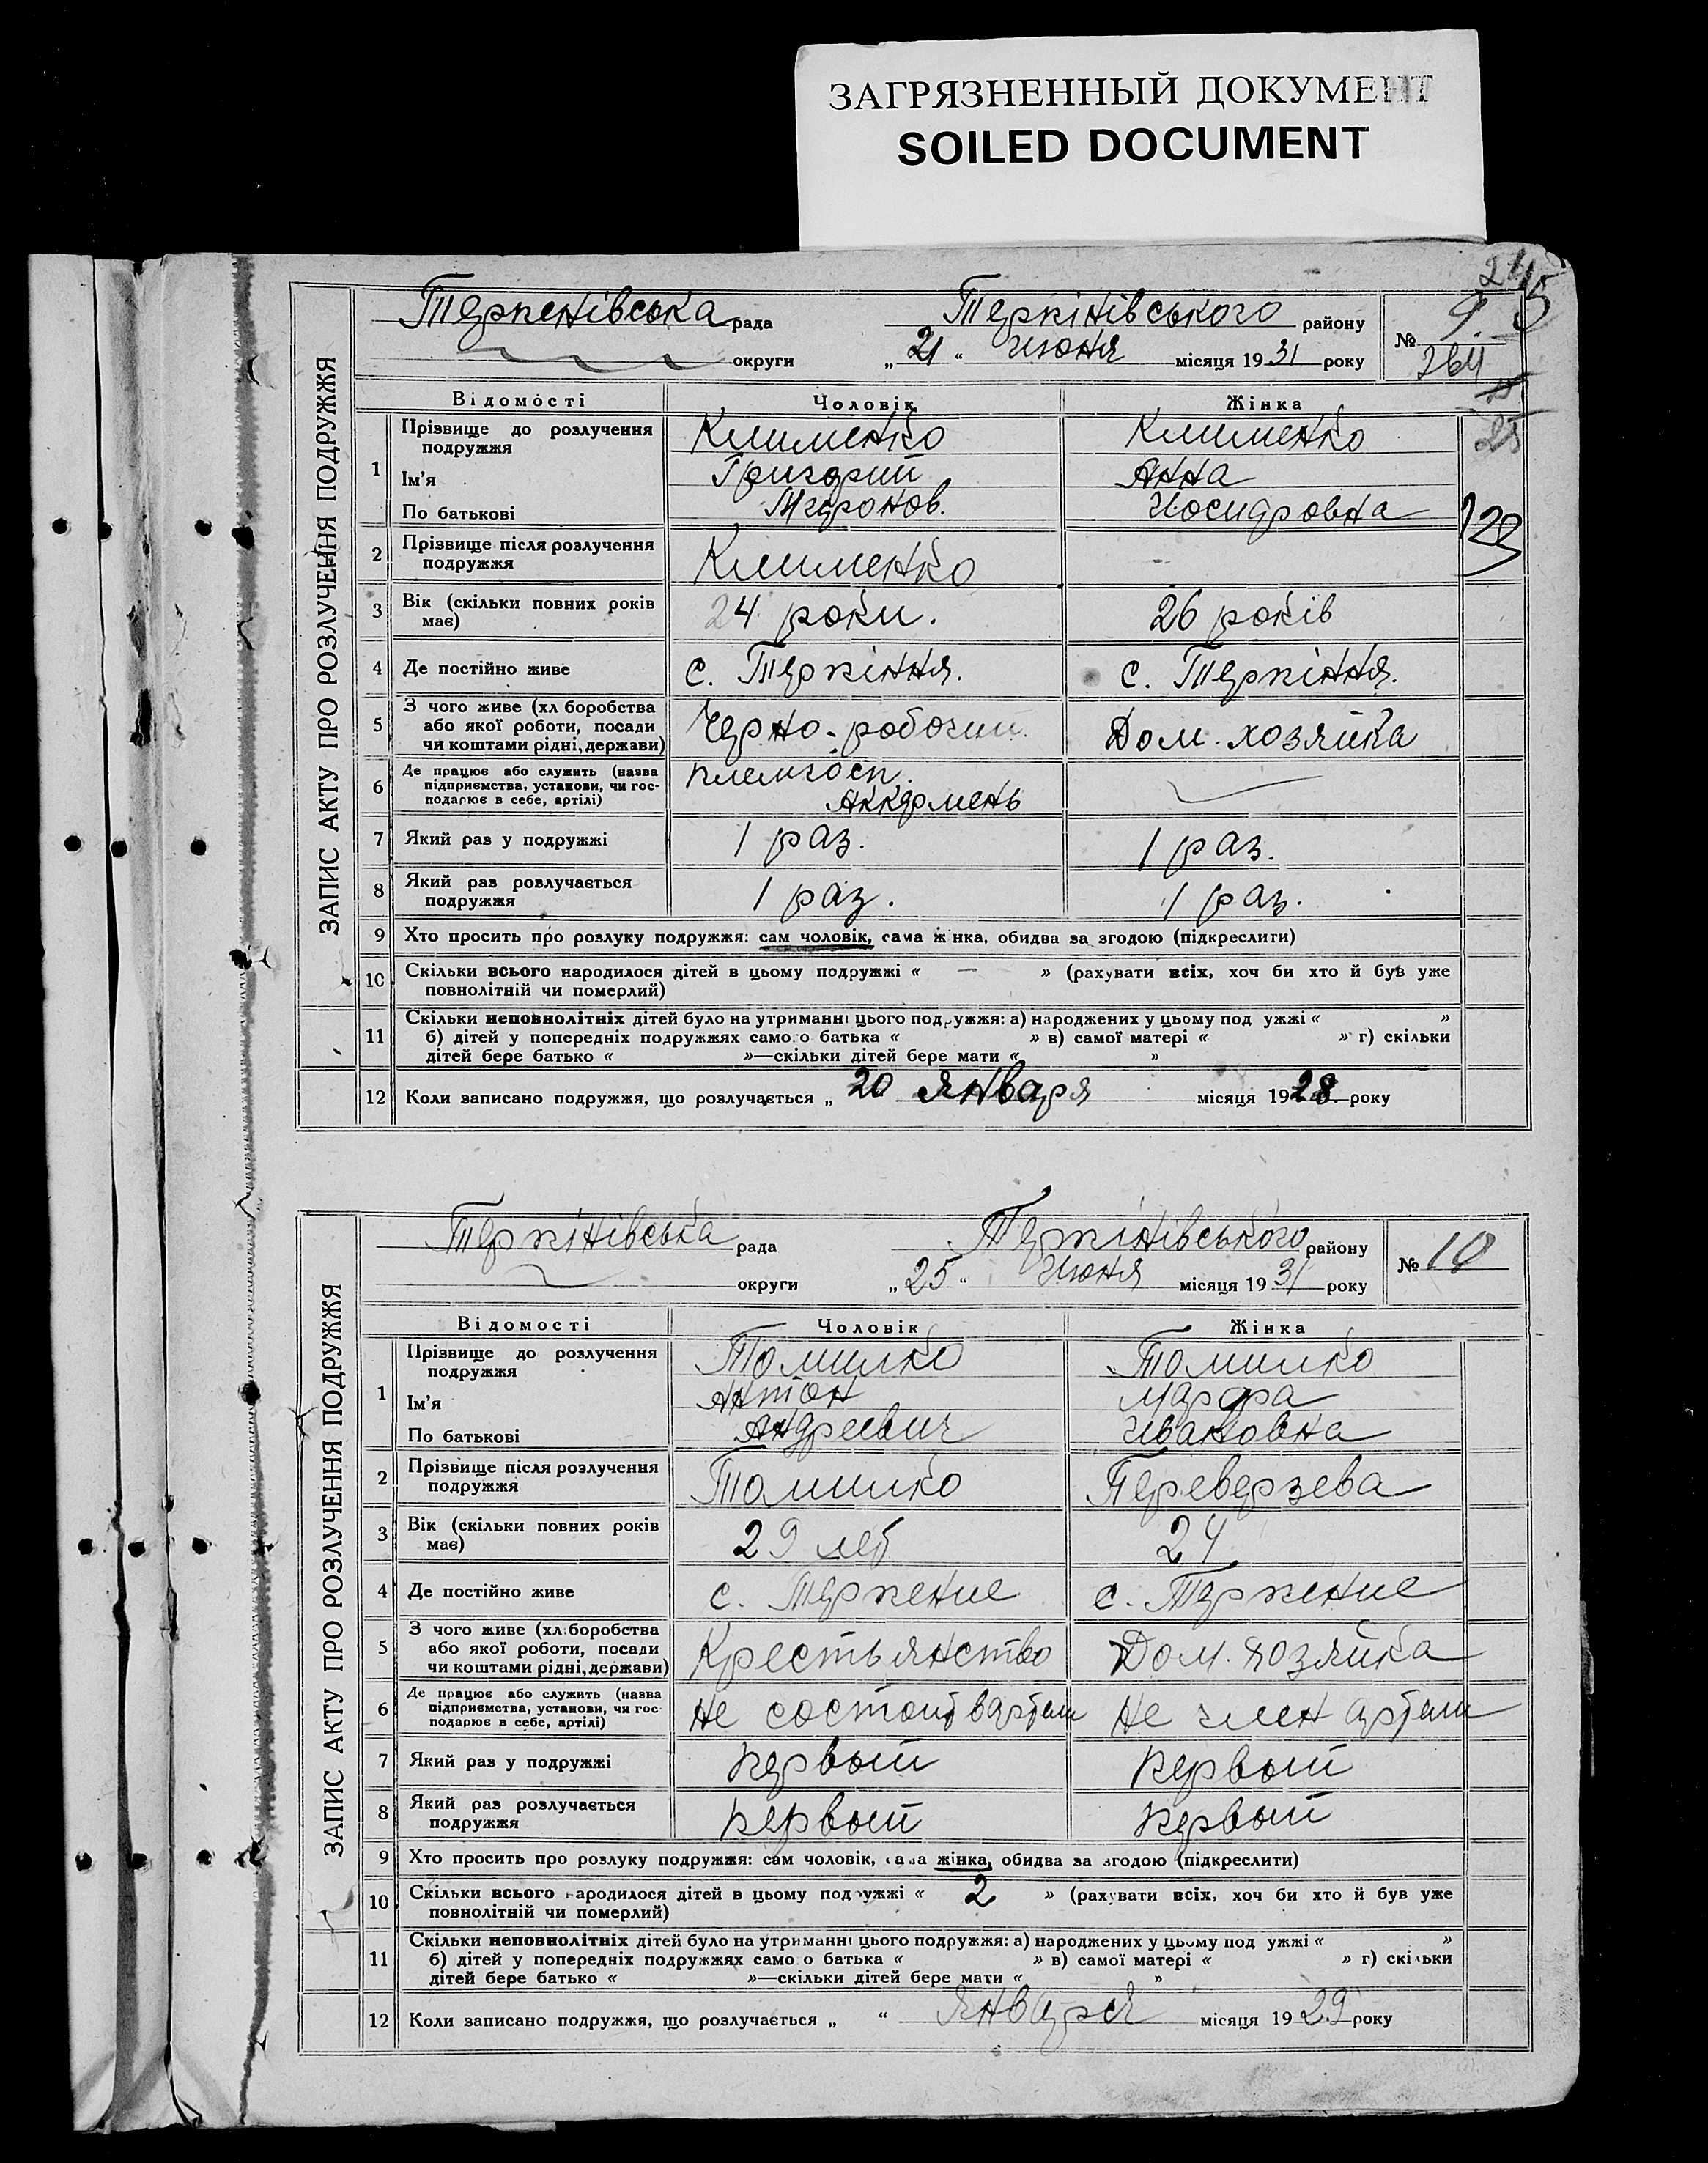 ЗАГРЯЗНЕННЫЙ ДОКУМЕНТ
SOILED DOCUMENT
245
ЗАПИС АКТУ ПРО РОЗЛУЧЕННЯ ПОДРУЖЖЯ
Терпенівська рада Терпінівського району № 9.
округи „ 21 “ Июня місяця 19 31 року 264
25
Відомості Чоловік Жінка
1 Прізвище до розлучення подружжя Клименко Клименко
Ім'я Григорий Анна
По батькові Миронов. Иосифовна
129
2 Прізвище після розлучення подружжя Клименко -
3 Вік (скільки повних років має) 24 роки. 26 років
4 Де постійно живе с. Терпіння. с. Терпіння.
5 З чого живе (хл боробства або якої роботи, посади чи коштами рідні, держави) Черно-робочий Дом. хозяйка
6 Де працює або служить (назва підприємства, установи, чи господарює в себе, артілі) племгосп. Аккермень
7 Який раз у подружжі 1 раз. 1 раз.
8 Який раз розлучається подружжя 1 раз. 1 раз.
9 Хто просить про розлуку подружжя: сам чоловік, сама жінка, обидва за згодою (підкреслити)
10 Скільки всього народилося дітей в цьому подружжі « — » (рахувати всіх, хоч би хто й був уже
повнолітній чи померлий)
11 Скільки неповнолітніх дітей було на утриманні цього подружжя: а) народжених у цьому под ужжі « »
б) дітей у попередніх подружжях самого батька « » в) самої матері « » г) скільки
дітей бере батько « »—скільки дітей бере мати « »
12 Коли записано подружжя, що розлучається „ 20 Января місяця 1928. року
ЗАПИС АКТУ ПРО РОЗЛУЧЕННЯ ПОДРУЖЖЯ
Терпінівська рада Терпінівського району № 10
округи „ 25 “ Июня місяця 19 31 року
Відомості Чоловік Жінка
1 Прізвище до розлучення подружжя Томилко Томилко
Ім'я Антон Марфа
По батькові Андреевич Ивановна
2 Прізвище після розлучення подружжя Томилко Переверзева
3 Вік (скільки повних років має) 29 лет 24
4 Де постійно живе с. Терпение с. Терпение
5 З чого живе (хл боробства або якої роботи, посади чи коштами рідні, держави) Крестьянство Дом. хозяйка
6 Де працює або служить (назва підприємства, установи, чи господарює в себе, артілі) Не состоит в артели Не член артели
7 Який раз у подружжі первый первый
8 Який раз розлучається подружжя первый первый
9 Хто просить про розлуку подружжя: сам чоловік, сама жінка, обидва за згодою (підкреслити)
10 Скільки всього народилося дітей в цьому подружжі « 2 » (рахувати всіх, хоч би хто й був уже
повнолітній чи померлий)
11 Скільки неповнолітніх дітей було на утриманні цього подружжя: а) народжених у цьому под ужжі « »
б) дітей у попередніх подружжях самого батька « » в) самої матері « » г) скільки
дітей бере батько « »—скільки дітей бере мати « »
12 Коли записано подружжя, що розлучається „ “ Января місяця 19 29 року